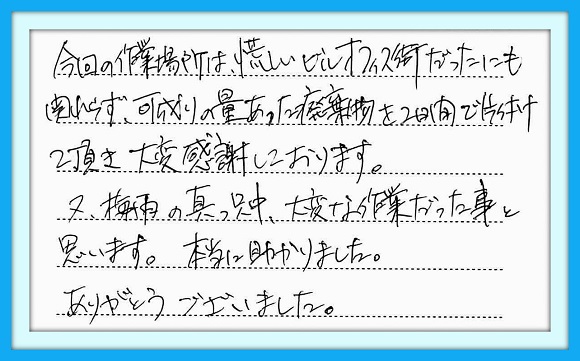 今回の作業場所は、慌しいビルオフィス街だったにも
関わらず、可成りの量あった廃棄物を2日間で片付け
て頂き大変感謝しております。
又、梅雨の真っ只中、大変な作業だった事と
思います。本当に助かりました。
ありがとうございました。